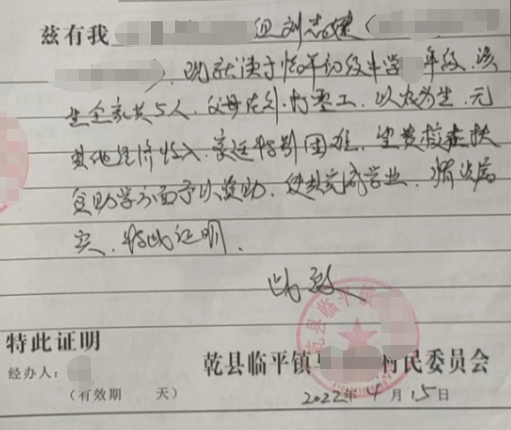 兹有我 组刘志建(
),现就读于临平初级中学 年级,该
生全家共5人,父母在外打零工,以农为生,无
其他经济收入,家庭特别困难,望贵校在扶
贫助学方面予以资助,使其完成学业,情况属
实,特此证明。
此致
特此证明
经办人:
(有效期 天)
乾县临平镇 村民委员会
2022年4月15日
乾县临平镇